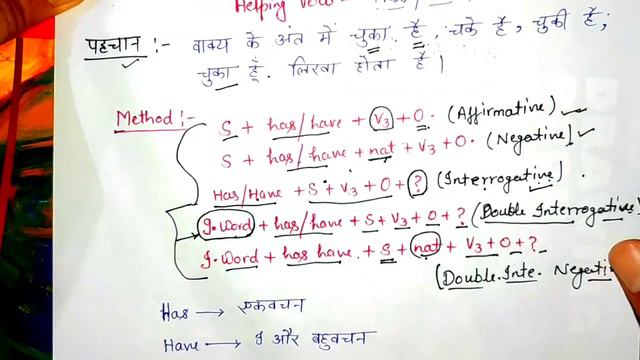 Helping
पहचान :- वाक्य के अंत में चुका है, चके है, चुकी है,
चुका हूँ. लिखा होता है।
Method :-
S + has/have + V3 + O. (Affirmative)
S + has/have + nat + V3 + O. (Negative)
Has/Have + S + V3 + O + ? (Interrogative)
I. word + has/have + S + V3 + O + ? (Double Interrogative)
I. word + has have + S + nat + V3 + O + ?
(Double. Inte. Negati
Has → एकवचन
Have → I और बहुवचन